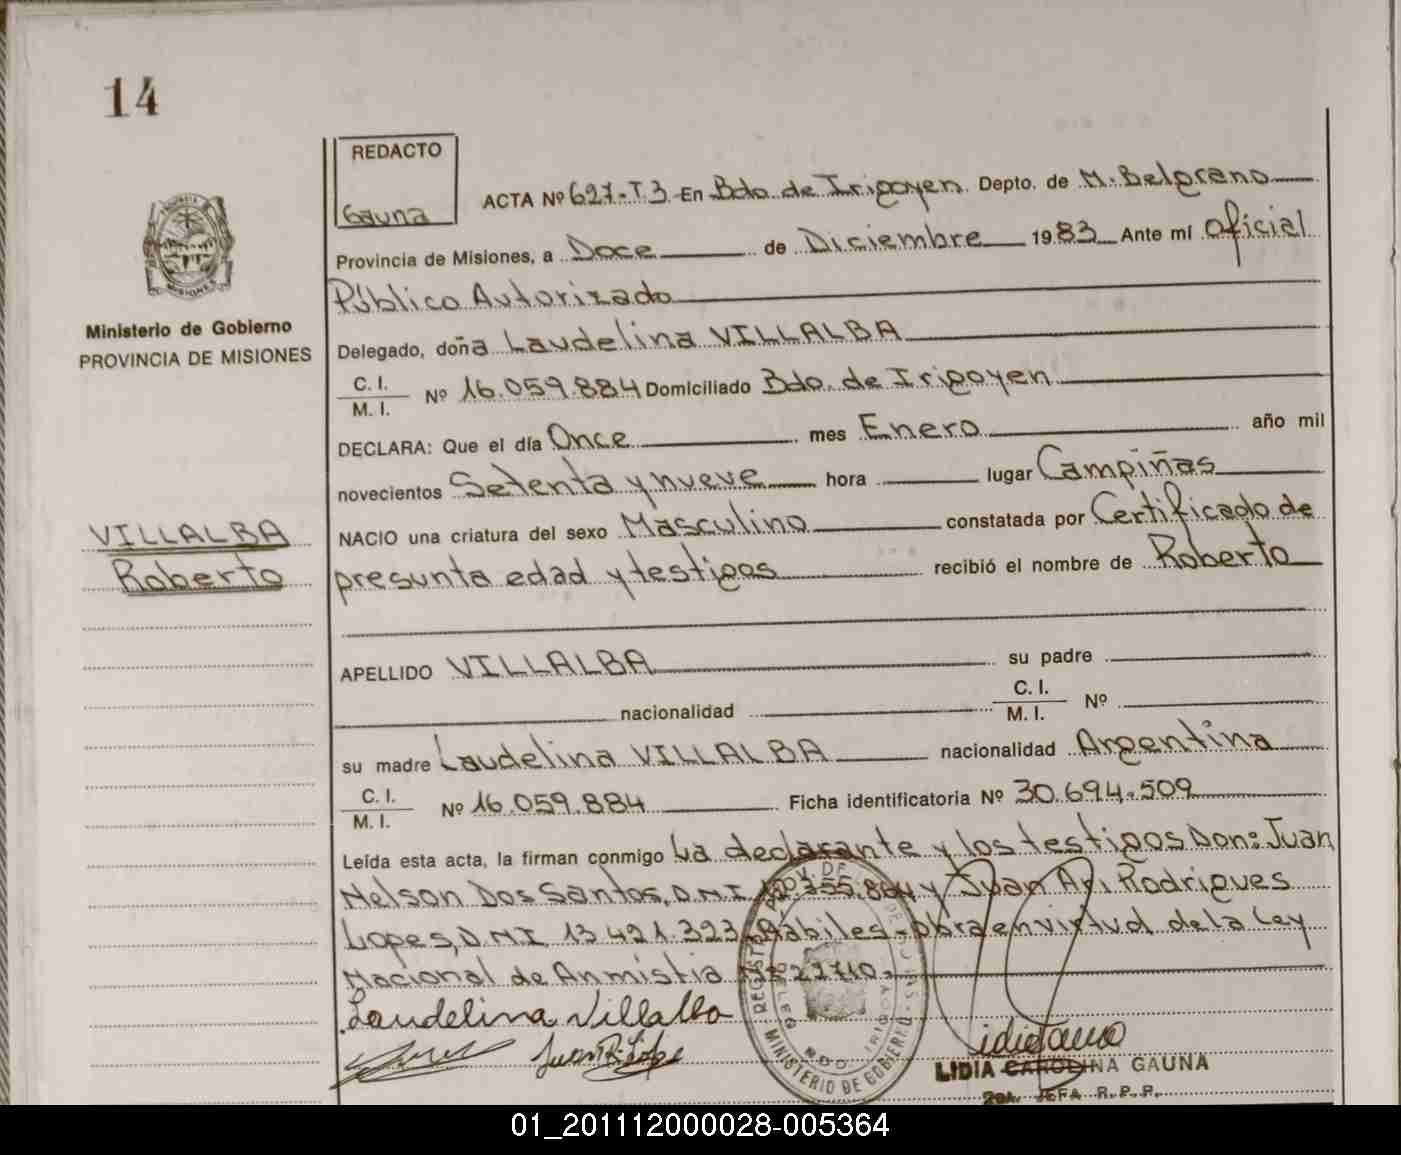 14
REDACTO
Gauna
ACTA Nº 627-T.3 En Bdo. de Irigoyen. Depto. de M. Belgrano
Provincia de Misiones, a Doce de Diciembre 1983 Ante mí Oficial
Público Autorizado
Ministerio de Gobierno
PROVINCIA DE MISIONES
Delegado, doña Laudelina VILLALBA
C. I.
M. I. Nº 16.059.884 Domiciliado Bdo. de Irigoyen
DECLARA: Que el día Once mes Enero año mil
novecientos Setenta y nueve hora lugar Campiñas
VILLALBA
Roberto
NACIO una criatura del sexo Masculino constatada por Certificado de
presunta edad y testigos recibió el nombre de Roberto
APELLIDO VILLALBA su padre
nacionalidad C. I.
M. I. Nº
su madre Laudelina VILLALBA nacionalidad Argentina
C. I.
M. I. Nº 16.059.884 Ficha identificatoria Nº 30.694.509
Leída esta acta, la firman conmigo La declarante y los testigos Don: Juan
Nelson Dos Santos, D.M.I. y Juan Ari Rodrigues
Lopes, D.M.I. 13.421.323 Hábiles - Obra en virtud de la Ley
Nacional de Anmistia Nº 22710.-
Laudelina Villalba
MINISTERIO DE GOBIERNO
LIDIA CAROLINA GAUNA
JEFA R.P.P.
01_201112000028-005364